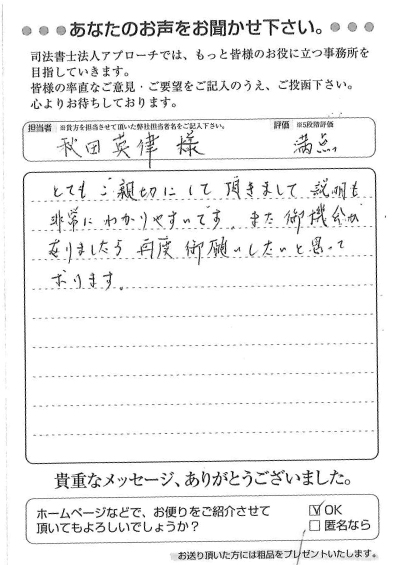 あなたのお声をお聞かせ下さい。
司法書士法人アプローチでは、もっと皆様のお役に立つ事務所を
目指していきます。
皆様の率直なご意見・ご要望をご記入のうえ、ご投函下さい。
心よりお待ちしております。
担当者 ※貴方を担当させて頂いた弊社担当者名をご記入下さい。 評価 ※5段階評価
秋田英律 様 満点。
とてもご親切にして頂きまして説明も
非常にわかりやすいです。また御機会が
有りましたら再度御願いしたいと思って
おります。
貴重なメッセージ、ありがとうございました。
ホームページなどで、お便りをご紹介させて
頂いてもよろしいでしょうか?
OK
匿名なら
お送り頂いた方には粗品をプレゼントいたします。